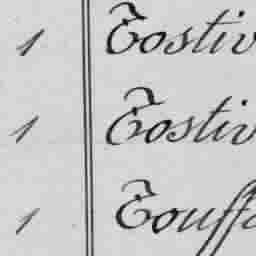 1 Tostiv
1 Tostiv
1 Touffa